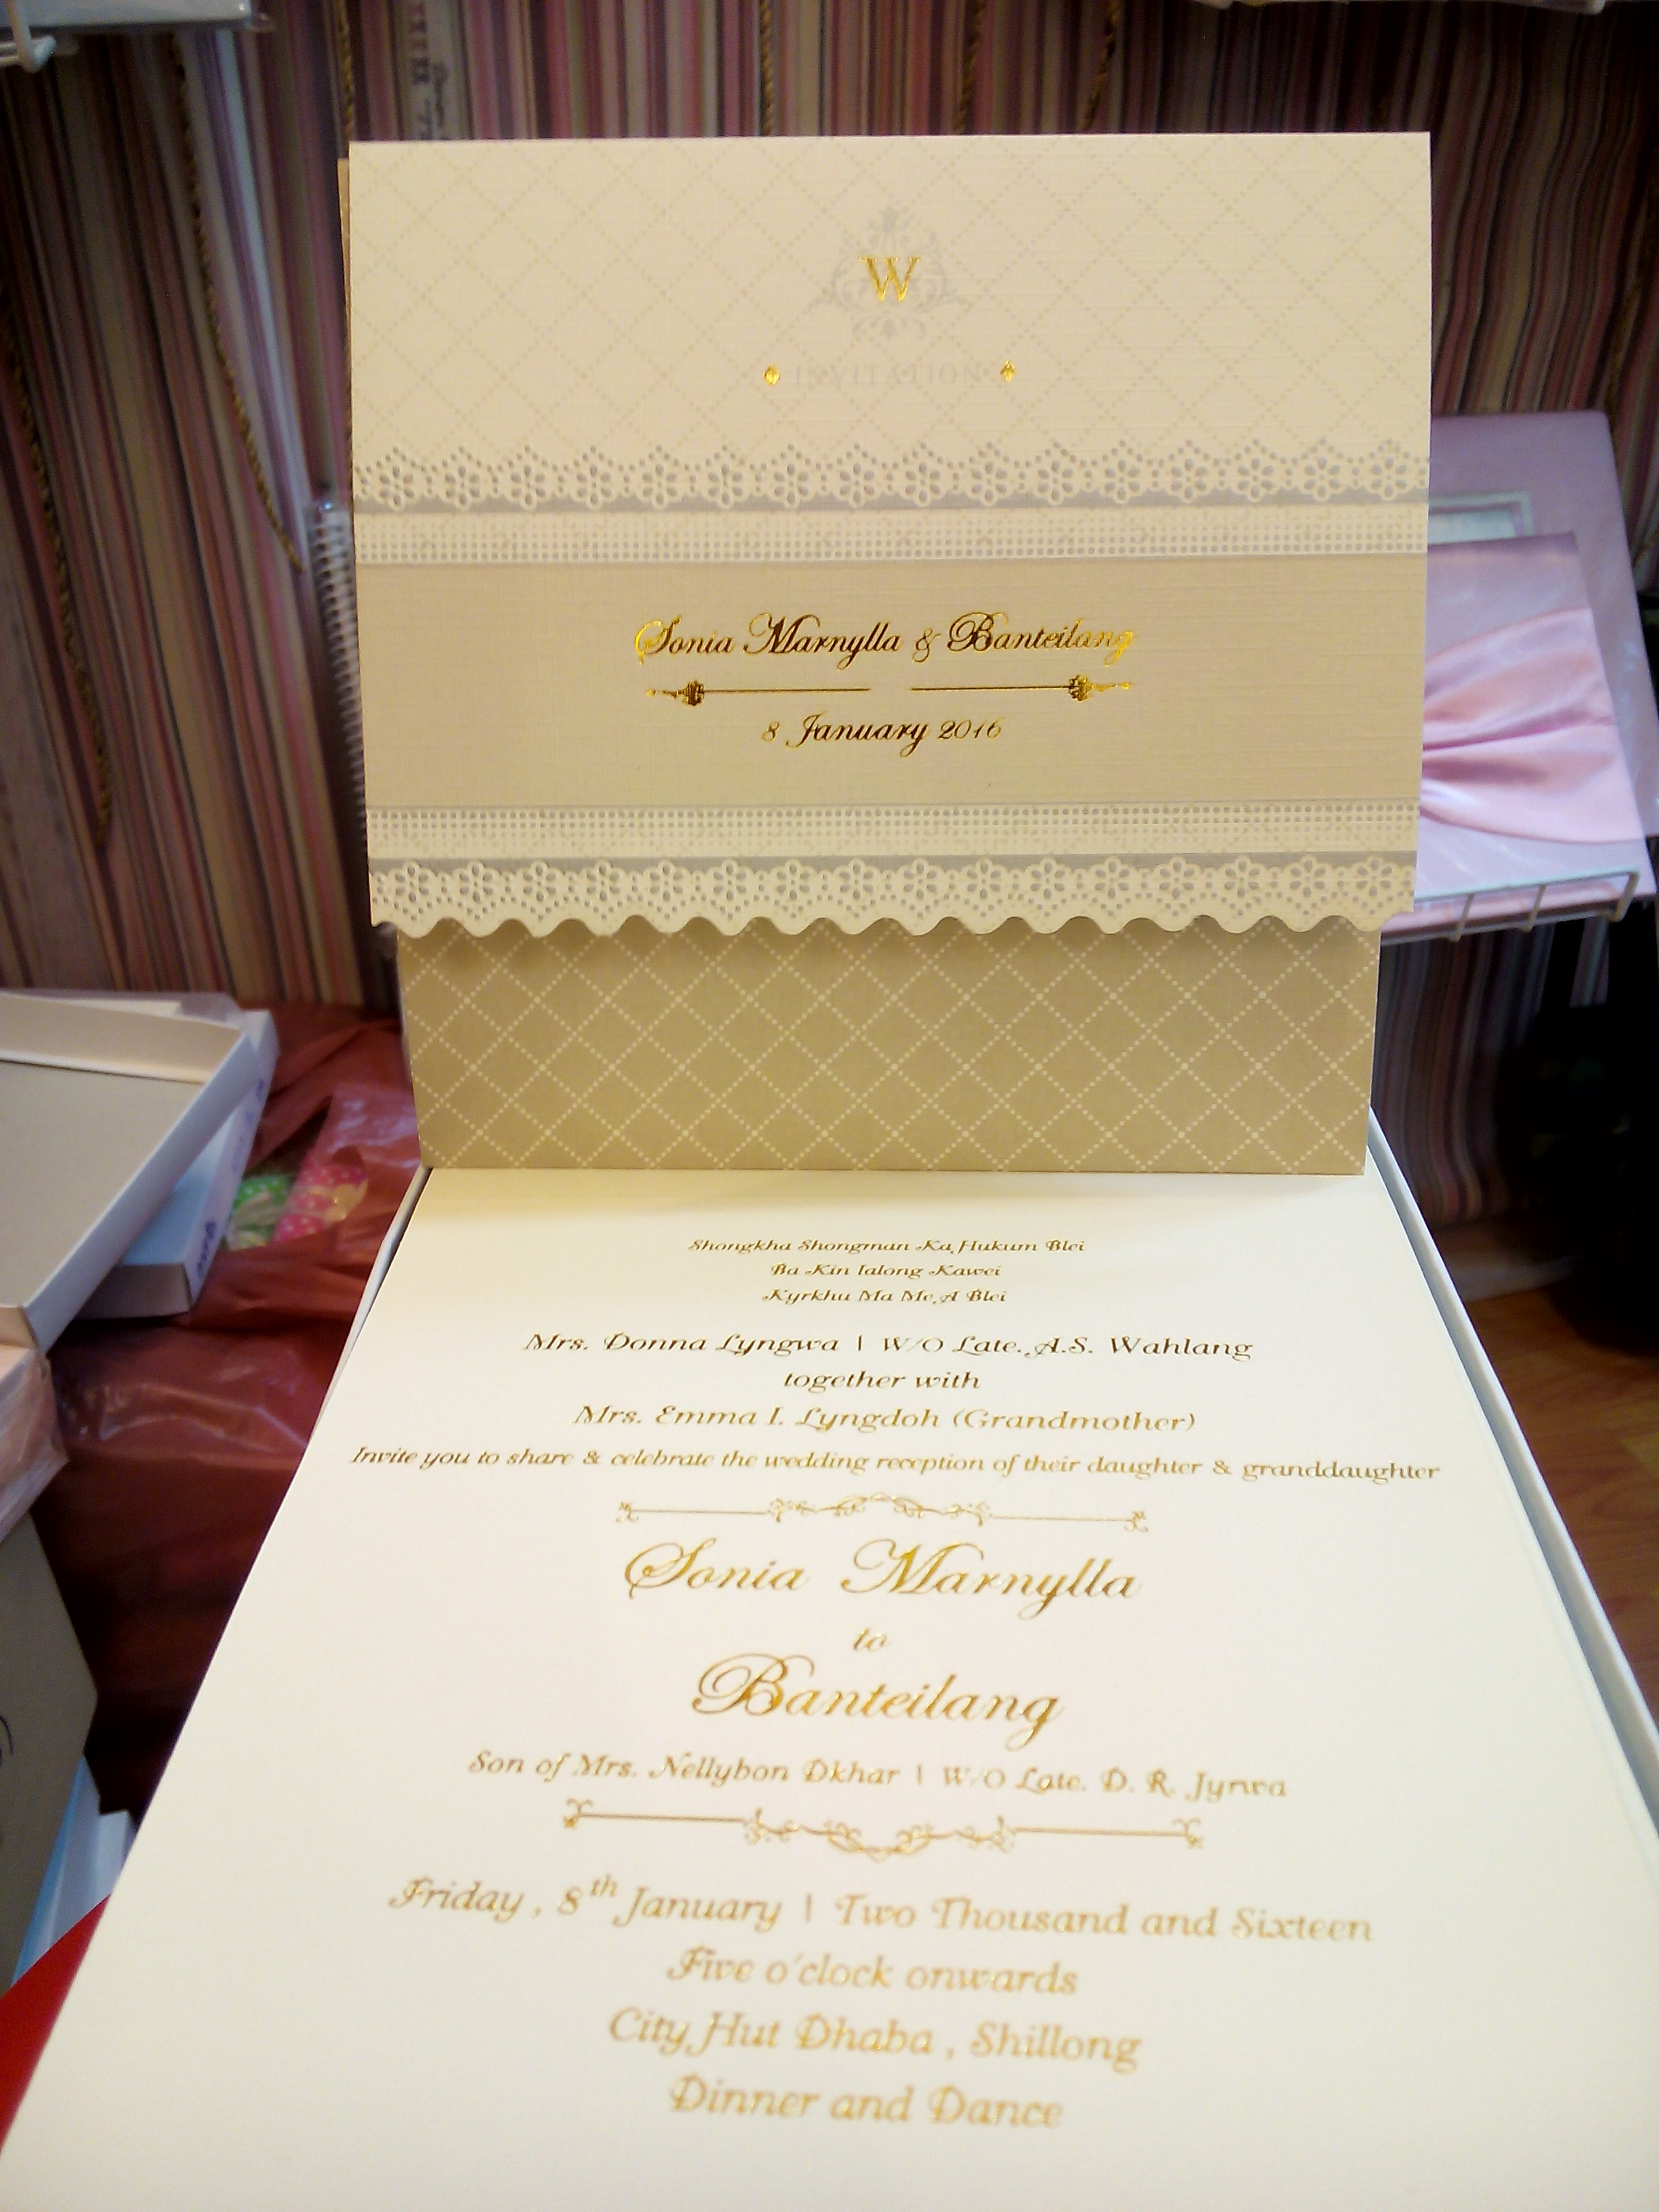 W
INVITATION
Sonia Marnylla & Banteilang
8 January 2016
Shongkha Shongman Ka Hukum Blei
Ba Kin Ialong Kawei
Kyrkhu Ma Me A Blei
Mrs. Donna Lyngwa | W/O Late. A.S. Wahlang
together with
Mrs. Emma I. Lyngdoh (Grandmother)
Invite you to share & celebrate the wedding reception of their daughter & granddaughter
Sonia Marnylla
to
Banteilang
Son of Mrs. Nellybon Dkhar | W/O Late. D. R. Jyrwa
Friday , 8th January | Two Thousand and Sixteen
Five o'clock onwards
City Hut Dhaba , Shillong
Dinner and Dance